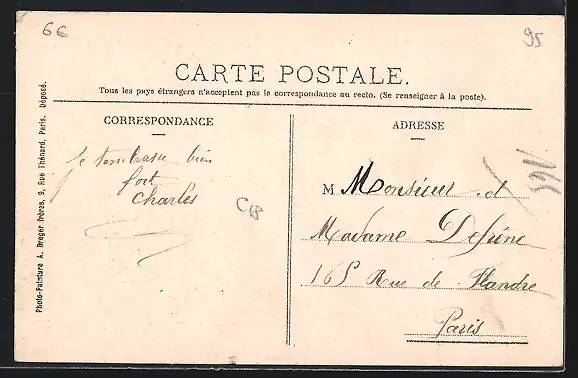 66
95
CARTE POSTALE.
Tous les pays étrangers n'acceptent pas la correspondance au recto. (Se renseigner à la poste).
CORRESPONDANCE
Je t'embrasse bien
fort
Charles
CB
ADRESSE
M Monsieur et
Madame Defrène
165 Rue de Flandre
Paris
Photo-Peinture A. Breger frères, 9, Rue Thénard, Paris. Déposé.